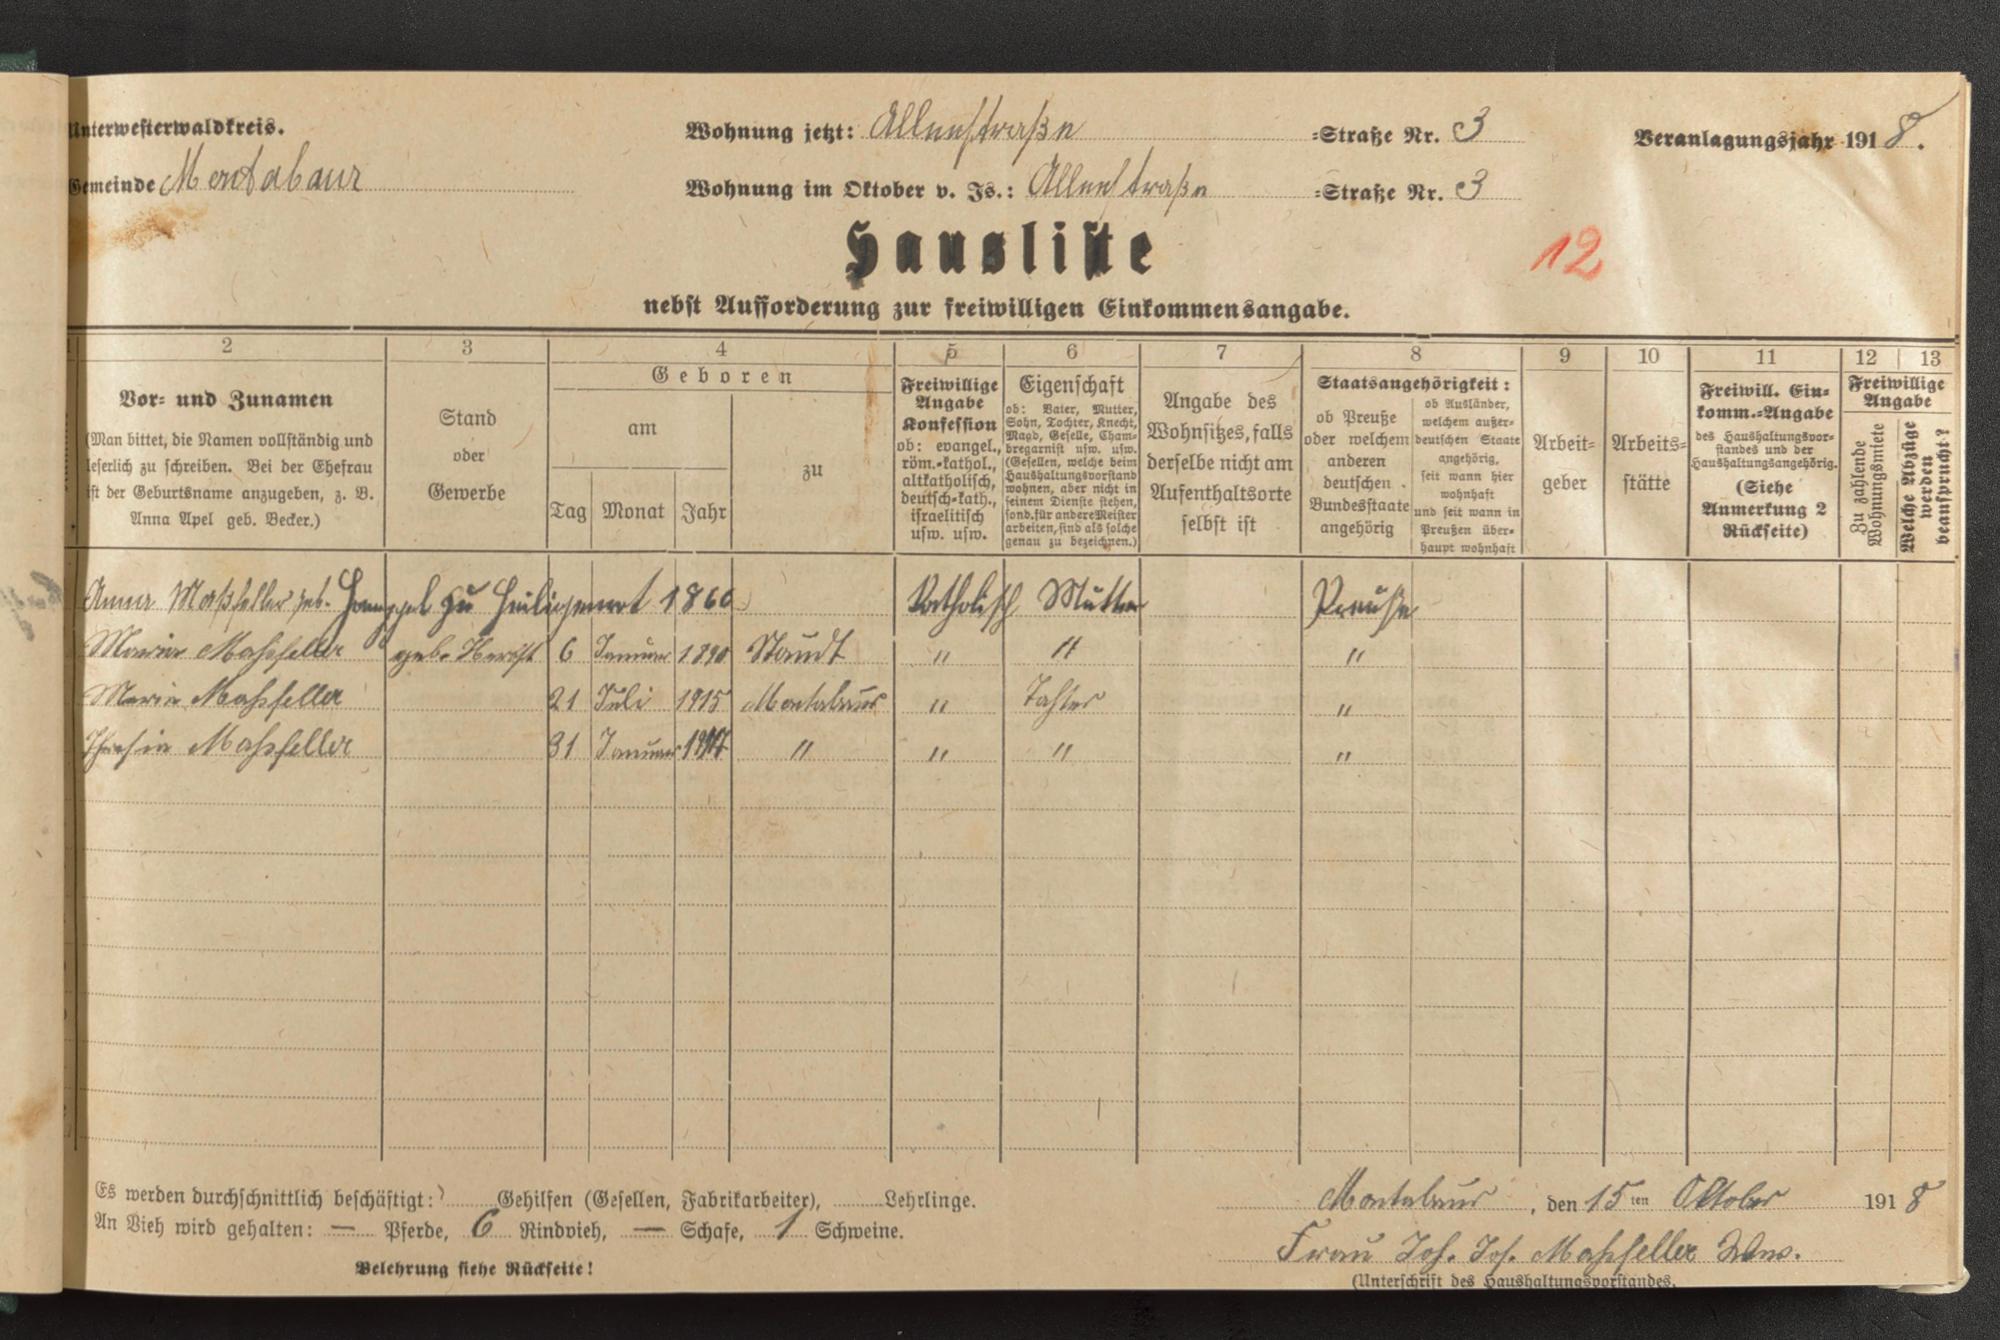 Unterwesterwaldkreis.
Wohnung jetzt: Alleestraße =Straße Nr. 3
Veranlagungsjahr 1918.
Gemeinde Montabaur
Wohnung im Oktober v. Js.: Alleestraße =Straße Nr. 3
Hausliste
12
nebst Aufforderung zur freiwilligen Einkommensangabe.
2 3 4 5 6 7 8 9 10 11 12 13
Vor= und Zunamen
(Man bittet, die Namen vollständig und
leserlich zu schreiben. Bei der Ehefrau
ist der Geburtsname anzugeben, z. B.
Anna Apel geb. Becker.)
Stand
oder
Gewerbe
Geboren
am
Tag Monat Jahr
zu
Freiwillige
Angabe
Konfession
ob: evangel.,
röm.=kathol.,
altkatholisch,
deutsch=kath.,
israelitisch
usw. usw.
Eigenschaft
ob: Vater, Mutter,
Sohn, Tochter, Knecht,
Magd, Geselle, Cham=
bregarnist usw. usw.
(Gesellen, welche beim
Haushaltungsvorstand
wohnen, aber nicht in
seinem Dienste stehen,
sond. für andere Meister
arbeiten, sind als solche
genau zu bezeichnen.)
Angabe des
Wohnsitzes, falls
derselbe nicht am
Aufenthaltsorte
selbst ist
Staatsangehörigkeit:
ob Preuße
oder welchem
anderen
deutschen
Bundesstaate
angehörig
ob Ausländer,
welchem außer=
deutschen Staate
angehörig,
seit wann hier
wohnhaft
und seit wann in
Preußen über=
haupt wohnhaft
Arbeit=
geber
Arbeits=
stätte
Freiwill. Ein=
komm.=Angabe
des Haushaltungsvor=
standes und der
Haushaltungsangehörig.
(Siehe
Anmerkung 2
Rückseite)
Freiwillige
Angabe
Zu zahlende
Wohnungsmiete
Welche Abzüge
werden
beansprucht?
Anna Maßfeller geb. zu 1860 Katholisch Mutter Preuße
Maria Maßfeller geb. 6 Januar 1890 Staudt " " "
Maria Maßfeller 21 Juli 1915 Montabaur " Tochter "
Maßfeller 31 Januar 1917 " " " "
Es werden durchschnittlich beschäftigt: Gehilfen (Gesellen, Fabrikarbeiter), Lehrlinge.
An Vieh wird gehalten: — Pferde, 6 Rindvieh, — Schafe, 1 Schweine.
Belehrung siehe Rückseite!
Montabaur, den 15ten Oktober 1918
Frau Joh. Jos. Maßfeller Wws.
(Unterschrift des Haushaltungsvorstandes.